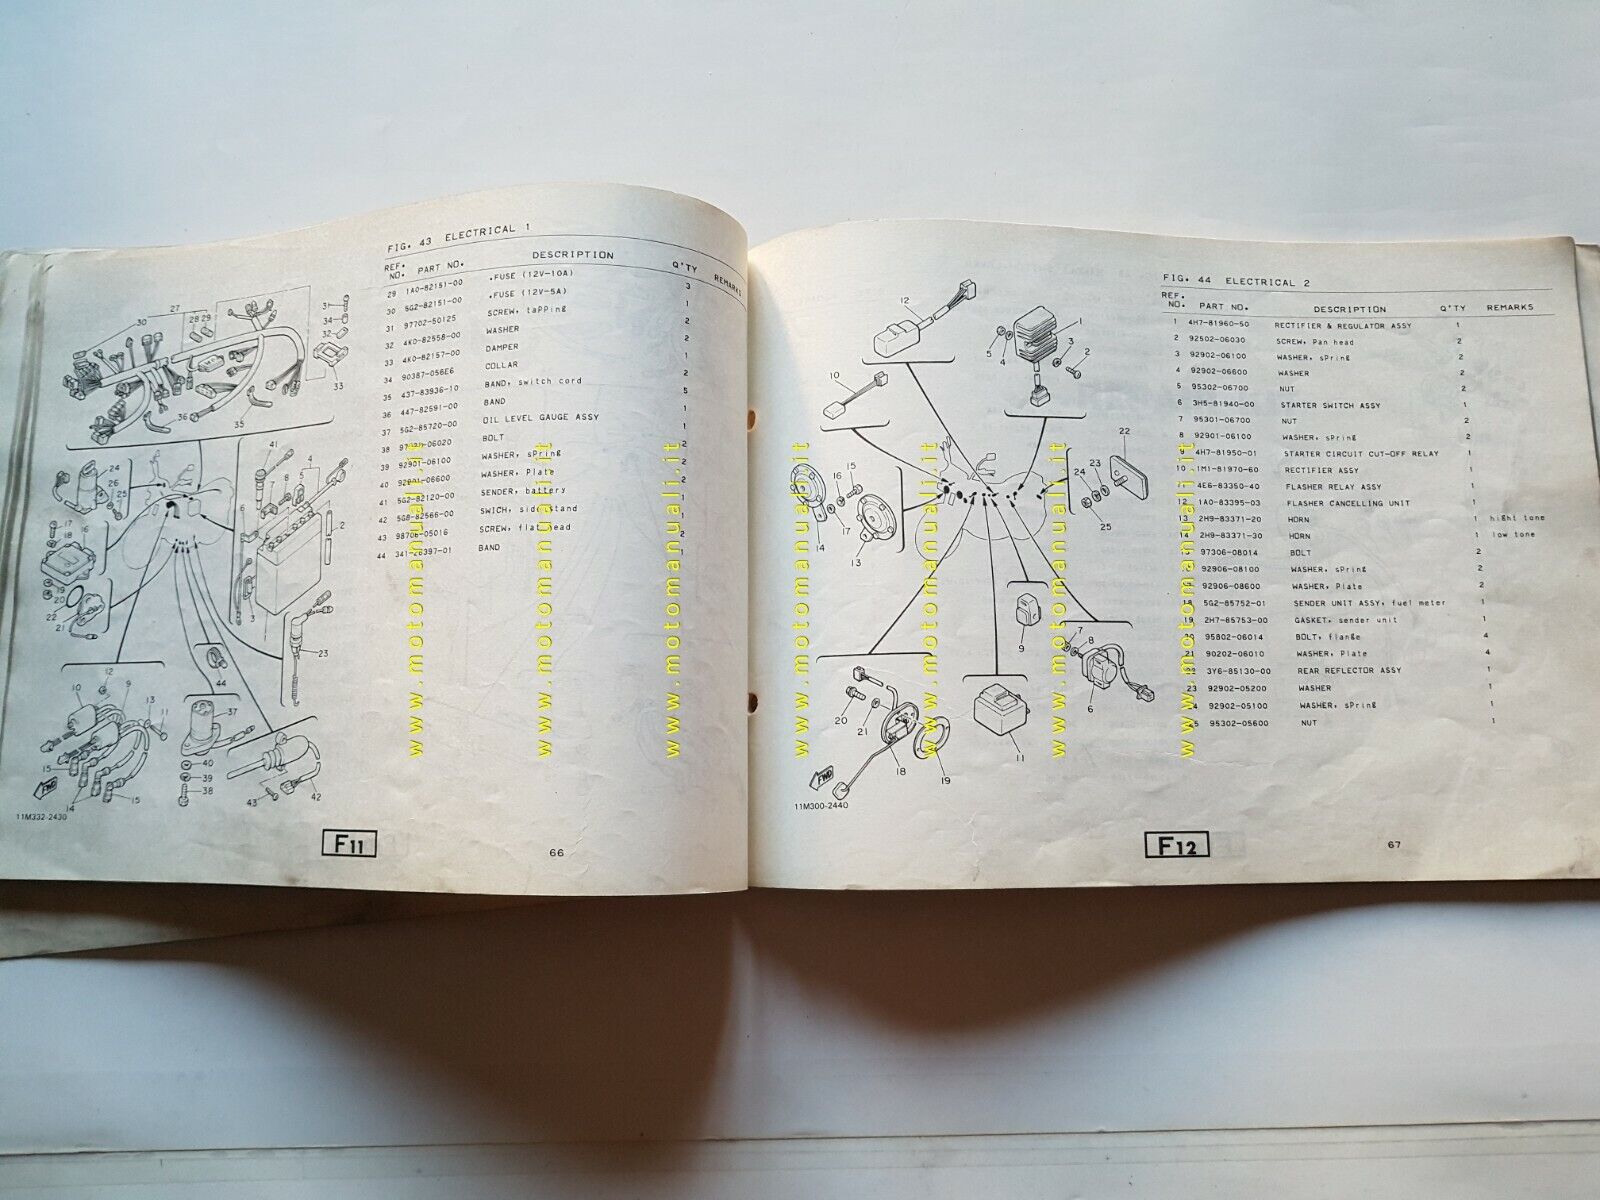 FIG. 43 ELECTRICAL 1
REF. NO. PART NO. DESCRIPTION Q'TY REMARKS
29 1A0-82151-00 .FUSE (12V-10A) 3
30 5G2-82151-00 .FUSE (12V-5A) 1
31 97702-50125 SCREW, tapping 2
32 4K0-82558-00 WASHER 2
33 4K0-82157-00 DAMPER 2
34 90387-056E6 COLLAR 2
35 437-83936-10 BAND, switch cord 5
36 447-82591-00 BAND 1
37 5G2-85720-00 OIL LEVEL GAUGE ASSY 1
38 06020 BOLT 2
39 92901-06100 WASHER, spring 2
40 92901-06600 WASHER, Plate 2
41 5G2-82120-00 SENDER, battery 1
42 5G8-82566-00 SWICH, side stand 1
43 98706-05016 SCREW, flat head 2
44 341-26397-01 BAND 1
11M332-2430
F11
66
FIG. 44 ELECTRICAL 2
REF. NO. PART NO. DESCRIPTION Q'TY REMARKS
1 4H7-81960-50 RECTIFIER & REGULATOR ASSY 1
2 92502-06030 SCREW, Pan head 2
3 92902-06100 WASHER, spring 2
4 92902-06600 WASHER 2
5 95302-06700 NUT 2
6 3H5-81940-00 STARTER SWITCH ASSY 1
7 95301-06700 NUT 2
8 92901-06100 WASHER, spring 2
9 4H7-81950-01 STARTER CIRCUIT CUT-OFF RELAY 1
10 1M1-81970-60 RECTIFIER ASSY 1
4E6-83350-40 FLASHER RELAY ASSY 1
12 1A0-83395-03 FLASHER CANCELLING UNIT 1
13 2H9-83371-20 HORN 1 hight tone
14 2H9-83371-30 HORN 1 low tone
97306-08014 BOLT 2
92906-08100 WASHER, spring 2
92906-08600 WASHER, Plate 2
18 5G2-85752-01 SENDER UNIT ASSY, fuel meter 1
19 2H7-85753-00 GASKET, sender unit 1
20 95802-06014 BOLT, flange 4
21 90202-06010 WASHER, Plate 4
22 3Y6-85130-00 REAR REFLECTOR ASSY 1
23 92902-05200 WASHER 1
92902-05100 WASHER, spring 1
95302-05600 NUT 1
11M300-2440
F12
67
FWD
FWD
www.motomanuali.it
www.motomanuali.it
www.motomanuali.it
www.motomanuali.it
www.motomanuali.it
www.motomanuali.it
www.motomanuali.it